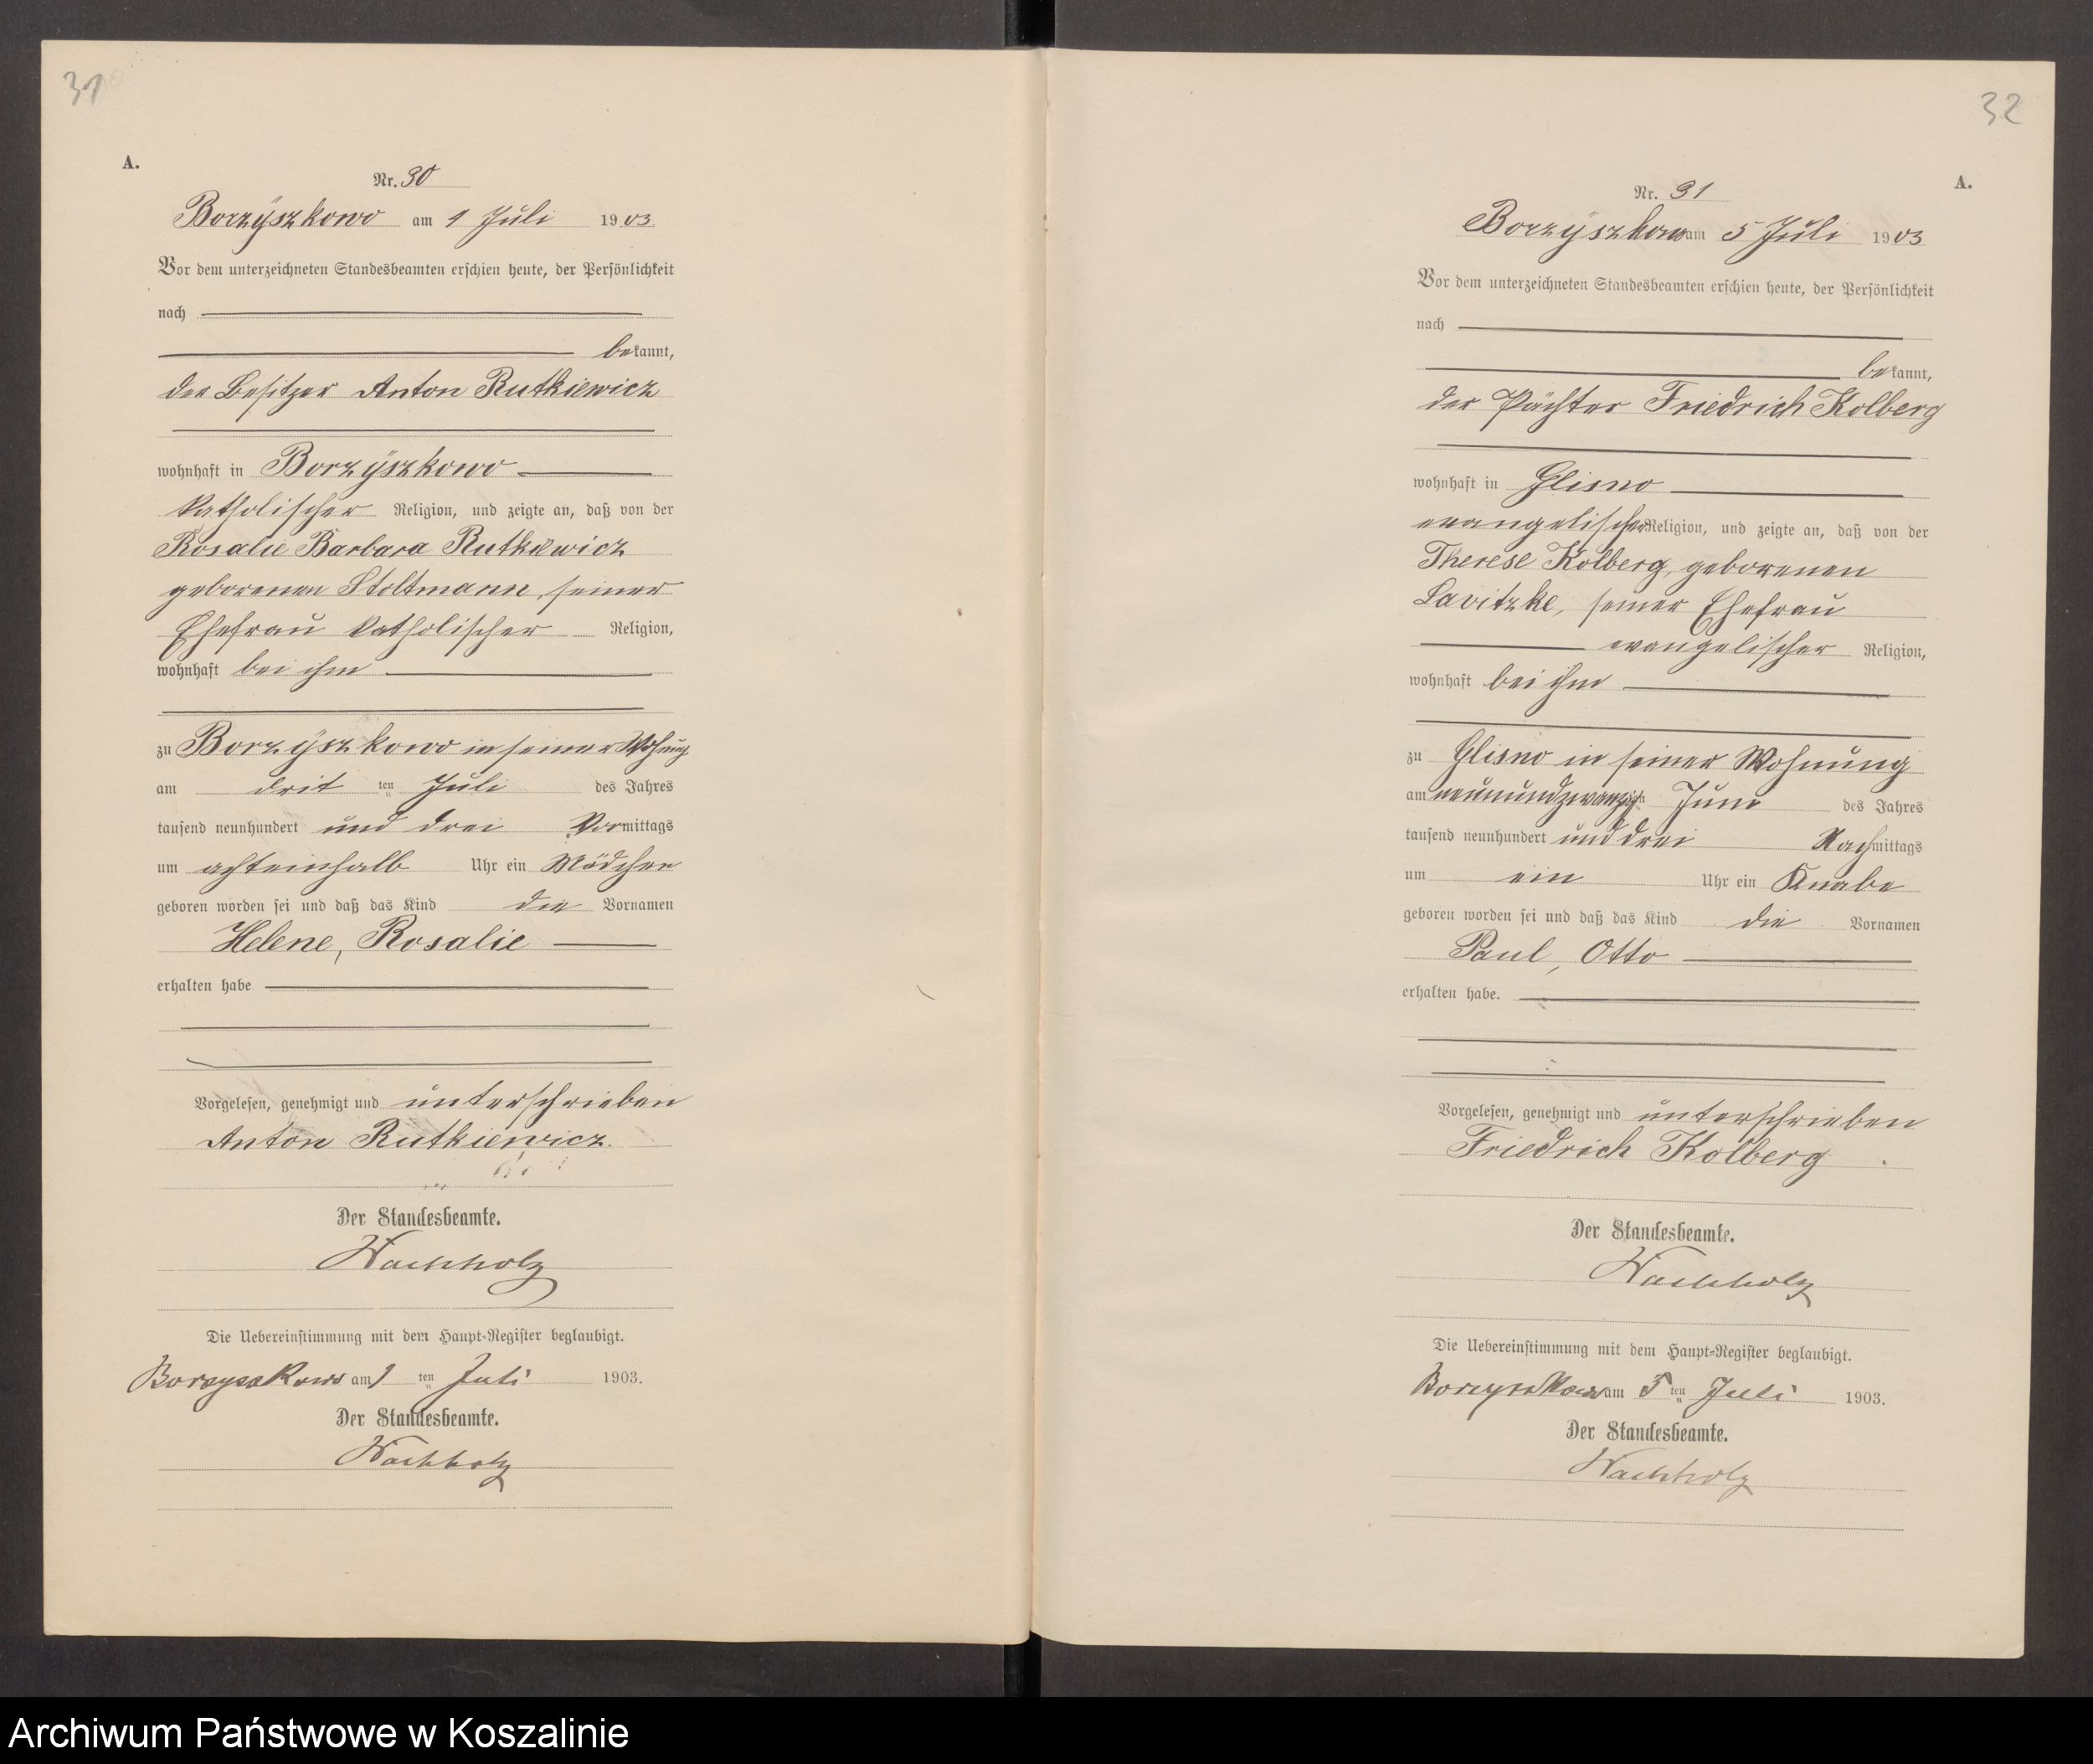 31
A.
Nr. 30
Borzÿszkowo am 1 Juli 1903
Vor dem unterzeichneten Standesbeamten erschien heute, der Persönlichkeit
nach
bekannt,
der Besitzer Anton Rutkiewicz
wohnhaft in Borzÿszkowo
katholischer Religion, und zeigte an, daß von der
Rosalie Barbara Rutkiewicz
geborenen Stoltmann, seiner
Ehefrau katholischer Religion,
wohnhaft bei ihm
zu Borzÿszkowo in seiner Wohnung
am drit ten Juli des Jahres
tausend neunhundert und drei Vormittags
um achteinhalb Uhr ein Mädchen
geboren worden sei und daß das Kind die Vornamen
Helene, Rosalie
erhalten habe
Vorgelesen, genehmigt und unterschrieben
Anton Rutkiewicz.
Der Standesbeamte.
Wachholz
Die Uebereinstimmung mit dem Haupt-Register beglaubigt.
Borzyszkowo am 1 ten Juli 1903.
Der Standesbeamte.
Wachholz
32
A.
Nr. 31
Borzÿszkowo am 5 Juli 1903
Vor dem unterzeichneten Standesbeamten erschien heute, der Persönlichkeit
nach
bekannt,
der Pächter Friedrich Kolberg
wohnhaft in Glisno
evangelischer Religion, und zeigte an, daß von der
Therese Kolberg, geborenen
Lavitzke, seiner Ehefrau
evangelischer Religion,
wohnhaft bei ihm
zu Glisno in seiner Wohnung
am neunundzwanzigsten Juni des Jahres
tausend neunhundert und drei Nachmittags
um ein Uhr ein Knabe
geboren worden sei und daß das Kind die Vornamen
Paul, Otto
erhalten habe.
Vorgelesen, genehmigt und unterschrieben
Friedrich Kolberg
Der Standesbeamte.
Wachholz
Die Uebereinstimmung mit dem Haupt-Register beglaubigt.
Borzyszkowo am 5 ten Juli 1903.
Der Standesbeamte.
Wachholz
Archiwum Państwowe w Koszalinie